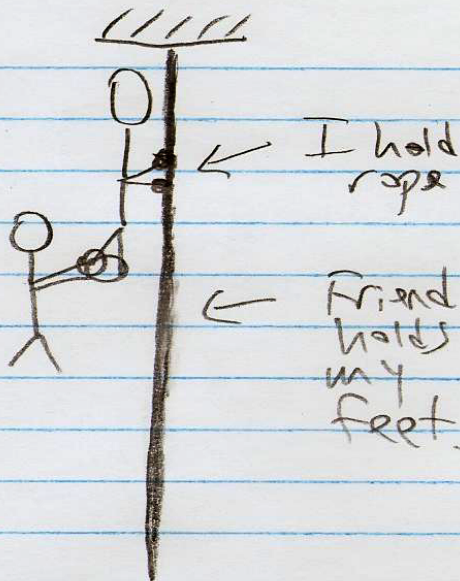 I hold
rope
Friend
holds
my
feet.